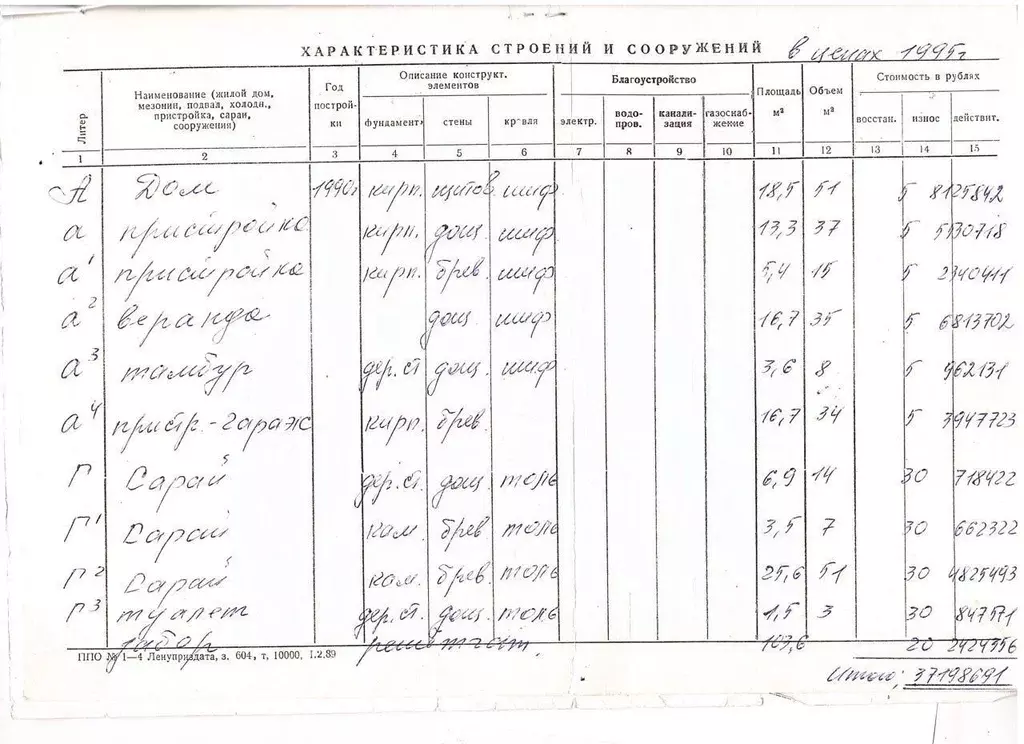 ХАРАКТЕРИСТИКА СТРОЕНИЙ И СООРУЖЕНИЙ в ценах 1995г
Литер
Наименование (жилой дом, мезонин, подвал, холодн., пристройка, сараи, сооружения)
Год построй-ки
Описание конструкт. элементов
фундамент. стены кровля
Благоустройство
электр. водо-пров. канали-зация газоснаб-жение
Площадь м²
Объем м³
Стоимость в рублях
восстан. износ действит.
1 2 3 4 5 6 7 8 9 10 11 12 13 14 15
А Дом 1990г кирп. щитов. шиф 18,5 51 5 8125842
а пристройка кирп. дощ. шиф 13,3 37 5 5530718
а1 пристройка кирп. брев. шиф 5,4 15 5 2340411
а2 веранда дощ. шиф 16,7 35 5 6813702
а3 тамбур дер.ст дощ. шиф 3,6 8 5 962131
а4 пристр.-гараж кирп. брев. 16,7 34 5 3947723
Г Сарай дер.ст. дощ. толь 6,9 14 30 718422
Г1 Сарай кам. брев. толь 3,5 7 30 662322
Г2 Сарай кам. брев. толь 25,6 51 30 4825493
Г3 туалет дер.ст. дощ. толь 1,5 3 30 847571
забор 103,6 20 2424356
ППО № 1—4 Ленуприздата, з. 604, т, 10000, 1.2.89
Итого: 37198691